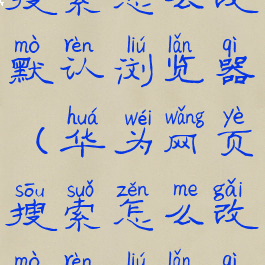 搜索怎么改
mò rèn liú lǎn qì
默认浏览器
huá wéi wǎng yè
（华为网页
sōu suǒ zěn me gǎi
搜索怎么改
mò rèn liú lǎn qì